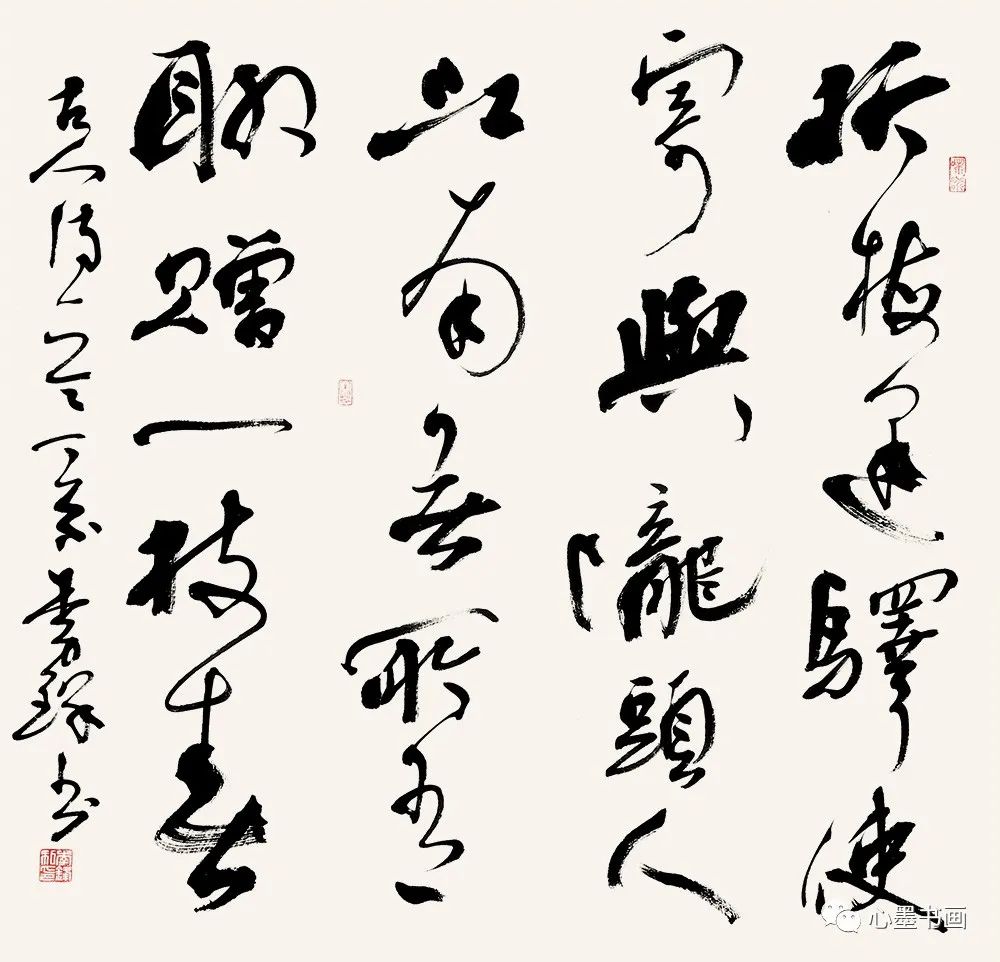 折梅逢驛使
寄與隴頭人
江南無所有
聊贈一枝春
古人詩一首
書
心墨书画